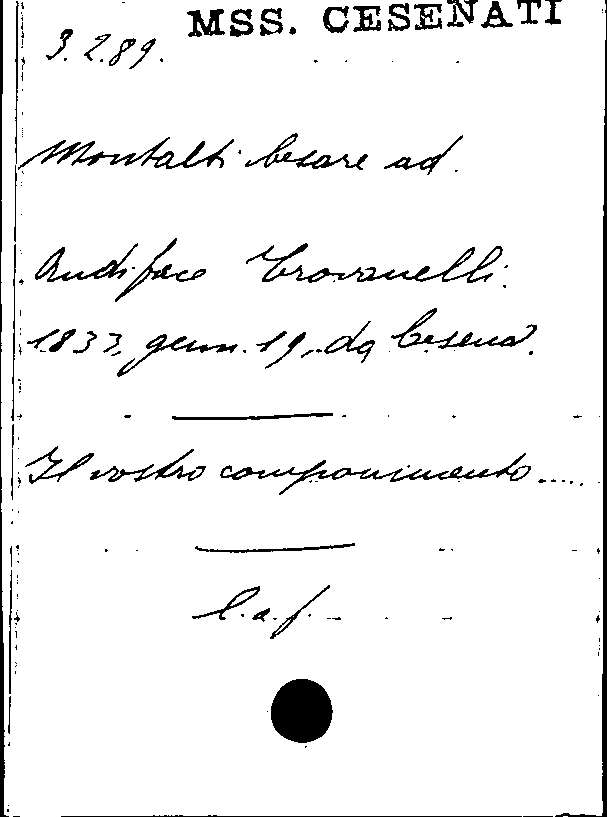 MSS. CESENATI
3.2.89.
Montalti Cesare ad
Audiface Trovanelli.
1833, genn. 19, da Cesena.
Il vostro componimento.....
l.a.f.